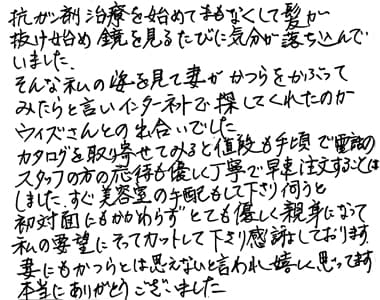 抗ガン剤治療を始めてまもなくして髪が
抜け始め鏡を見るたびに気分が落ち込んで
いました。
そんな私の姿を見て妻がかつらをかぶって
みたらと言いインターネットで探してくれたのが
ウィズさんとの出合いでした
カタログを取り寄せてみると値段も手頃で電話の
スタッフの方の応待も優しく丁寧で早速注文することに
しました。すぐ美容室の手配もして下さり伺うと
初対面にもかかわらずとても優しく親身になって
私の要望にそってカットして下さり感謝しております
妻にもかつらとは思えないと言われ嬉しく思ってます
本当にありがとうございました